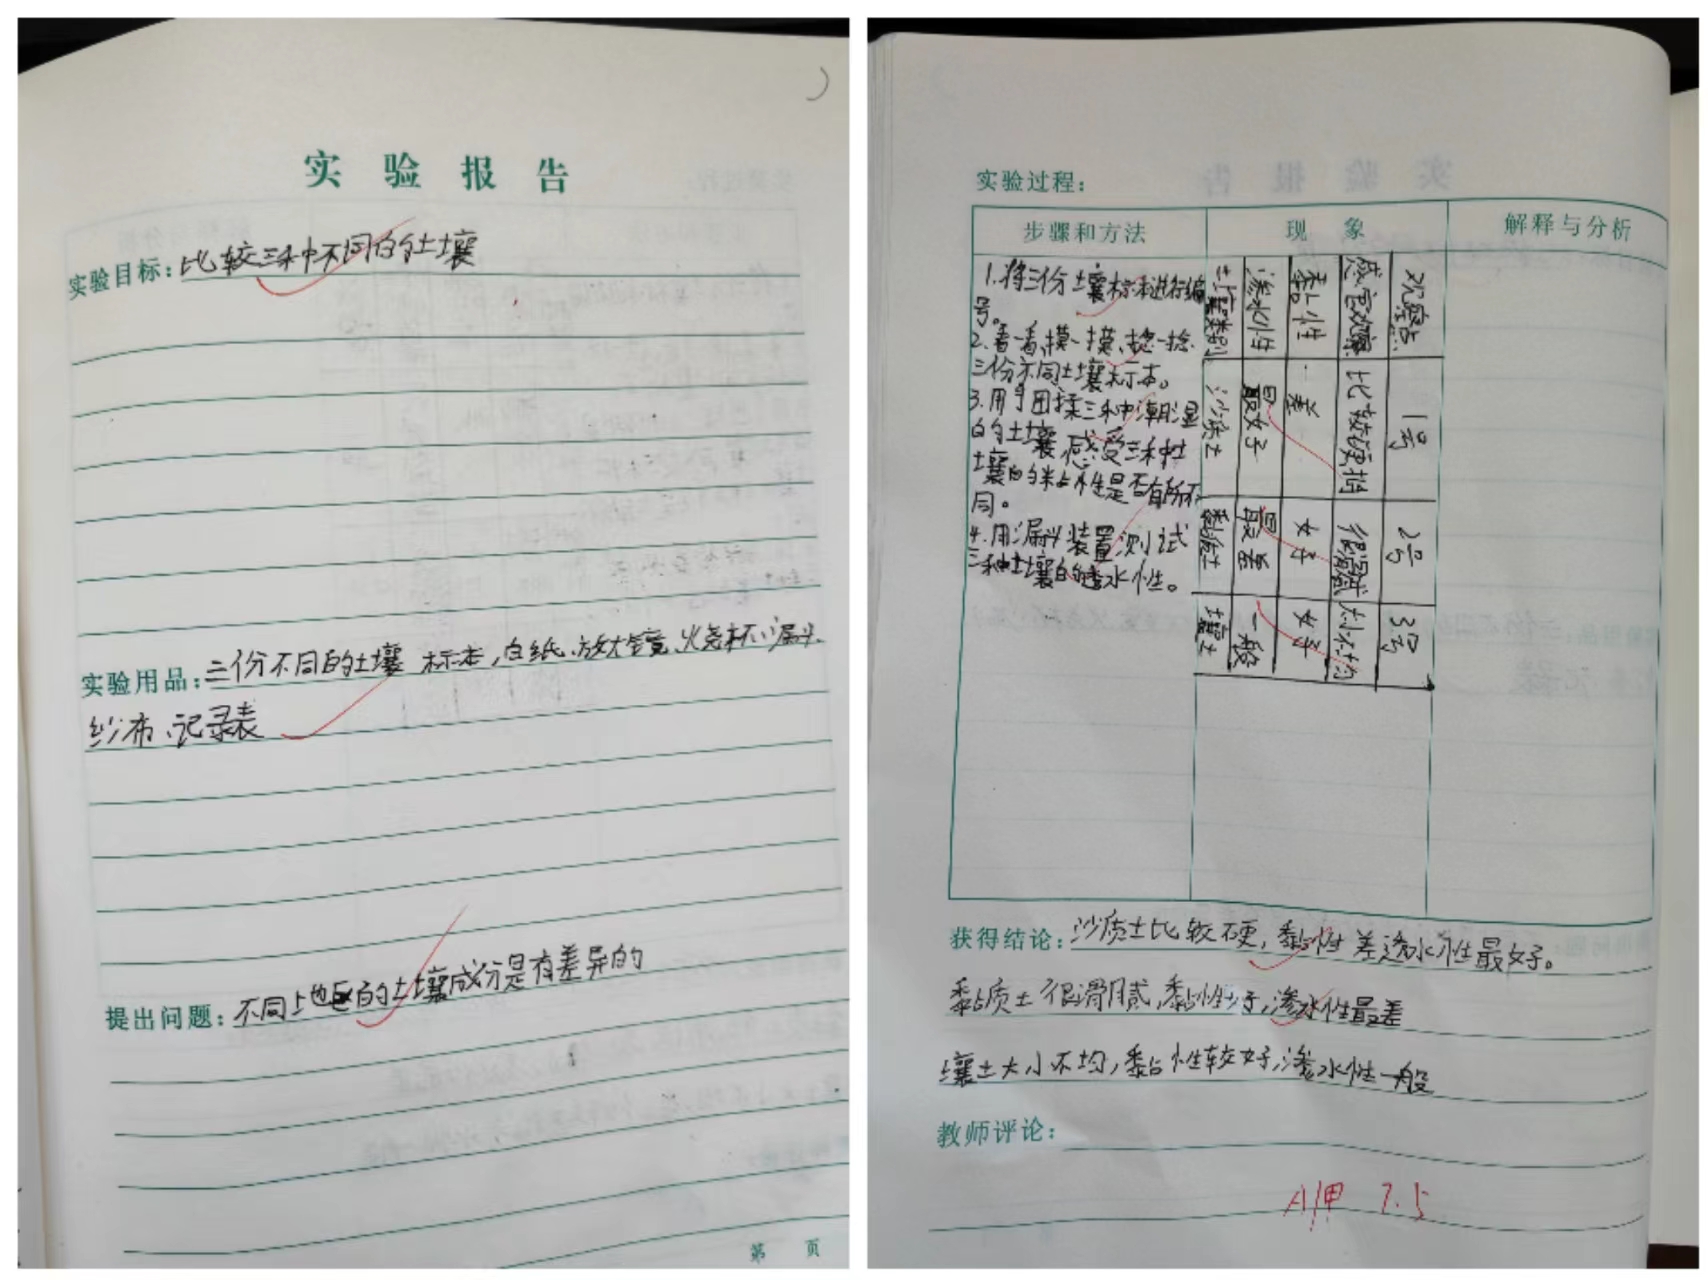 实验报告
实验目标：比较三种不同的土壤
实验用品：三份不同的土壤标本，白纸、放大镜、火烧杯、漏斗、
纱布、记录表
提出问题：不同地区的土壤成分是有差异的
第 页
实验过程：
步骤和方法 现象 解释与分析
1.将三份土壤标本进行编
号。
2.看一看，摸一摸、捻一捻
三份不同土壤标本。
3.用手团揉三种潮湿
的土壤，感受三种土
壤的粘性是否有所不
同。
4.用漏斗装置测试
三种土壤的渗水性。
观察点 1号 2号 3号
感官观察 比较硬 很滑腻 大小不均
黏性 差 好 好
渗水性 最好 最差 一般
土壤类别 沙质土 黏质土 壤土
获得结论：沙质土比较硬，黏性差渗水性最好。
黏质土很滑腻，黏性好，渗水性最差
壤土大小不均，黏性较好，渗水性一般
教师评论：
7.5